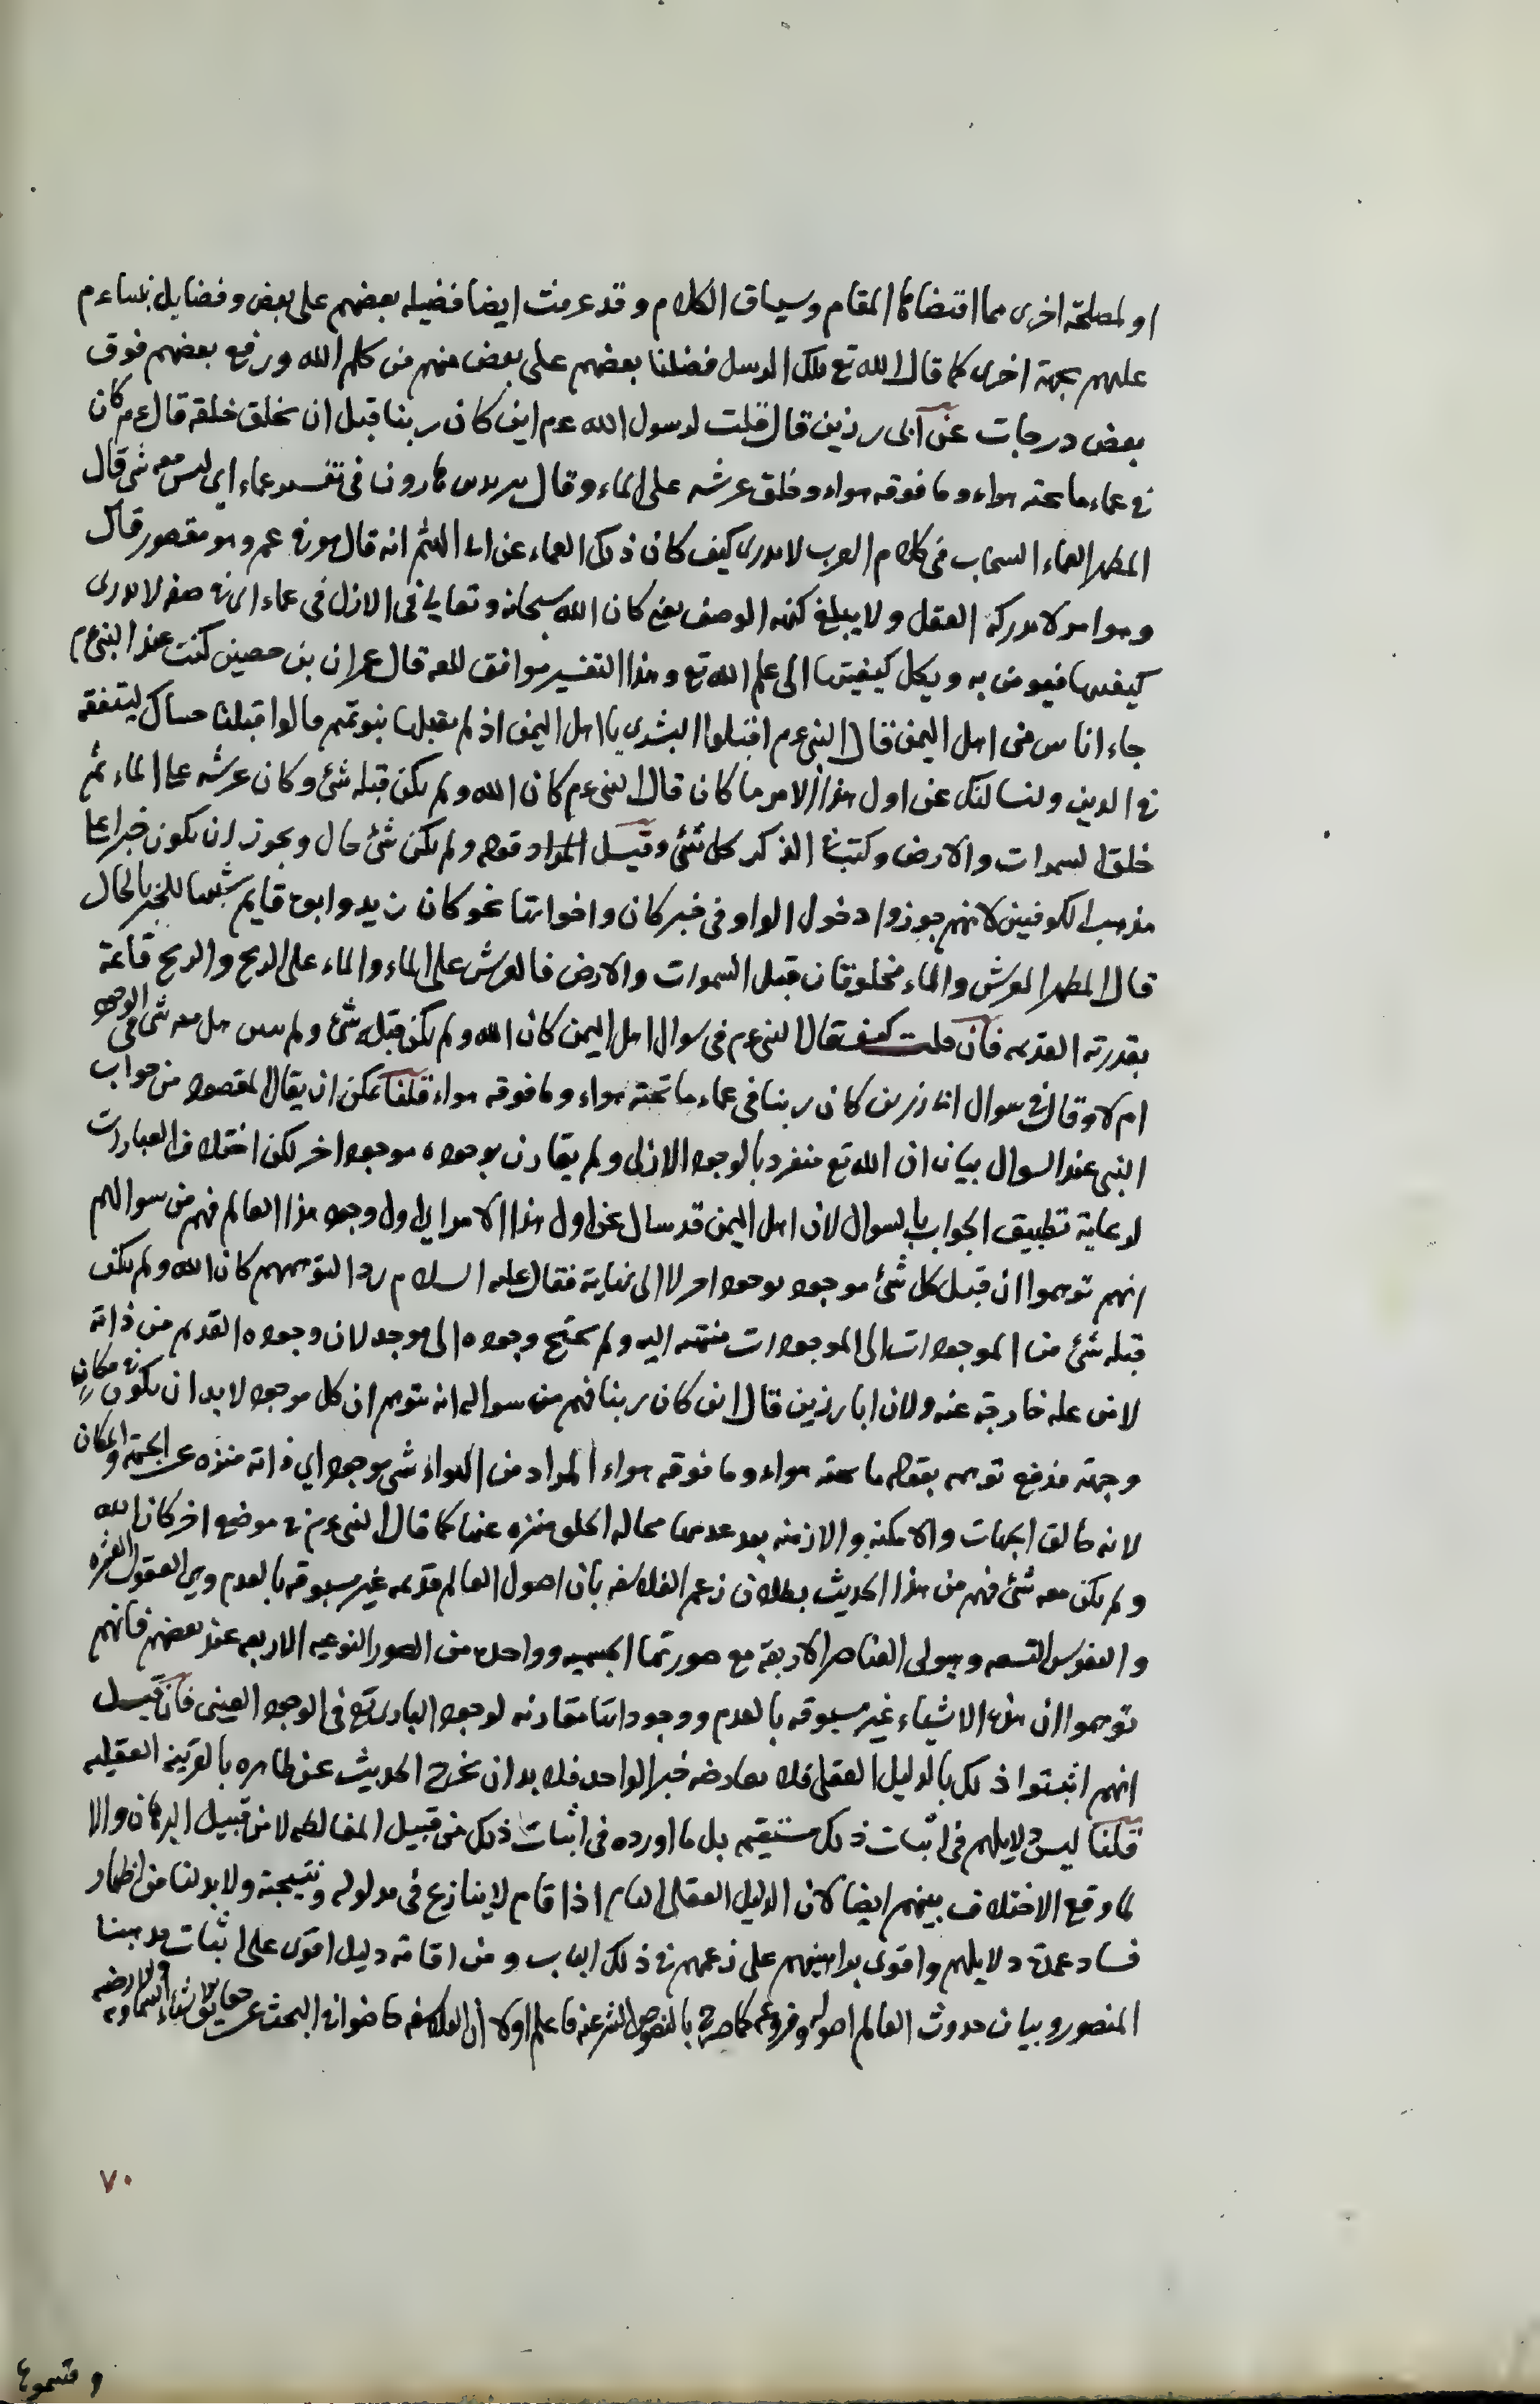 او لمصلحة اخرى مما اقتضاها المقام وسياق الكلام وقد عرفت ايضا فضيله بعضهم على بعض وفضايل نبينا عم
عليهم بجهة اخرى كما قال الله تع تلك الرسل فضلنا بعضهم على بعض منهم من كلم الله ورفع بعضهم فوق
بعض درجات عن ابى رزين قال قلت لرسول الله عم اين كان ربنا قبل ان يخلق خلقه قال عم كان
فى عماء ما تحته هواء وما فوقه هواء وخلق عرشه على الماء وقال يزيد بن هارون فى تفسير عماء اى ليس معه شئ قال
المظهر العماء السحاب فى كلام العرب لا يدرى كيف كان ذلك العماء عن ابى الهيثم انه قال هو فى عمى وهو مقصور قال
وهو امر لا يدركه العقل ولا يبلغ كنهه الوصف يعنى كان الله سبحانه وتعالى فى الازل فى عماء اى فى صفه لا يدرى
كيفيتها فيومن به ويكل كيفيتها الى علم الله تع وهذا التفسير موافق للغه قال عمران بن حصين كنت عند النبى عم
جاء اناس من اهل اليمن فقال النبى عم اقبلوا البشرى يا اهل اليمن اذ لم يقبلها بنو تميم قالوا قبلنا جئناك ليتفقه
فى الدين ولنسالنك عن اول هذا الامر ما كان قال النبى عم كان الله ولم يكن قبله شئ وكان عرشه على الماء ثم
خلق السموات والارض وكتب فى الذكر كل شئ وقيل المراد قوله ولم يكن شئ حال ويجوز ان يكون خبرا على
مذهب الكوفيين لانهم جوزوا دخول الواو فى خبر كان واخواتها نحو كان زيد وابوه قايم شبها للخبر بالحال
قال المظهر العرش والماء مخلوقان قبل السموات والارض فالعرش على الماء والماء على الريح والريح قائمة
بقدرته القديمه فان قلت كيف قال النبى عم فى سوال اهل اليمن كان الله ولم يكن قبله شئ ولم يبين هل معه شئ فى الوجود
ام لا وقال فى سوال ابى رزين كان ربنا فى عماء ما تحته هواء وما فوقه هواء قلنا يمكن ان يقال المقصود من جواب
النبى عند السوال بيان ان الله تع منفرد بالوجود الازلى ولم يقارن بوجوده موجود اخر لكن اختلاف العبارات
لرعاية تطبيق الجواب بالسوال لان اهل اليمن قد سال عن اول هذا الامر اى اول وجود هذا العالم فهم من سوالهم
انهم توهموا ان قبل كل شئ موجود بوجود اخر لا الى نهاية فقال عليه السلام ردا لتوهمهم كان الله ولم يكن
قبله شئ من الموجودات الى الموجودات منتهيه اليه ولم يحتج وجوده الى موجد لان وجوده القديم من ذاته
لا من علة خارجة عنه ولان ابا رزين قال اين كان ربنا فهم من سواله انه توهم ان كل موجود لا بد ان يكون فى مكان
وجهة فدفع توهمه بقوله ما تحته هواء وما فوقه هواء المراد من الهواء شئ موجود اى ذاته منزه عن الجهة والمكان
لانه خالق الجهات والامكنه والازمنه بعد عدمها محاله الخلق منزه عنها كما قال النبى عم فى موضع اخر كان الله
ولم يكن معه شئ فهم من هذا الحديث بطلان زعم الفلاسفه بان اصول العالم قديمه غير مسبوقه بالعدم وهى العقول العشره
والنفوس التسعه وهيولى العناصر الاربعة مع صورتها الجسميه وواحدة من الصور النوعيه الاربعه عند بعضهم فانهم
توهموا ان هذه الاشياء غير مسبوقه بالعدم ووجوداتها مقارنه لوجود البارى تع فى الوجود العينى فان قيل
انهم اثبتوا ذلك بالدليل العقلى فلا يعارضه خبر الواحد فلا بد ان يخرج الحديث عن ظاهره بالقرينه العقليه
قلنا ليس دلايلهم فى اثبات ذلك مستقيمه بل ما اورده فى اثبات ذلك من قبيل المغالطه لا من قبيل البرهان والا
لما وقع الاختلاف بينهم ايضا لان الدليل العقلى التام اذا قام لا ينازع فى مدلوله ونتيجته ولا بد لنا من اظهار
فساد عمدة دلايلهم واقوى براهينهم على زعمهم فى ذلك الباب ومن اقامة دليل اقوى على اثبات مذهبنا
المنصور وبيان حدوث العالم اصوله وفروعه كما صرح بالنصوص الشرعيه فاعلم اولا ان الفلاسفه خاضوا فى البحث عن حقايق الاشياء السماويه والارضيه
٧٠